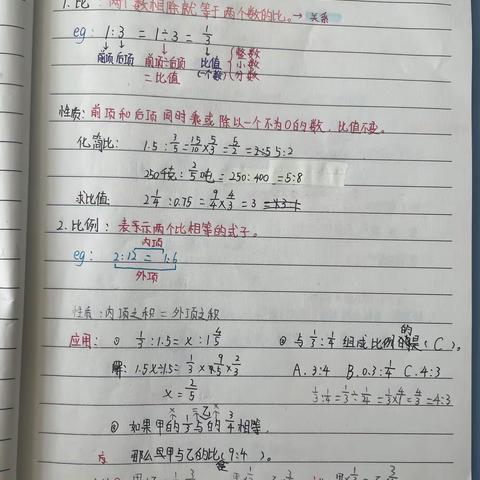 1.比：两个数相除就等于两个数的比。→关系
eg： 1:3 = 1÷3 = 1/3
前项 后项 前项÷后项 比值 整数
=比值 (一个数) 小数
分数
性质：前项和后项同时乘或除以一个不为0的数，比值不变。
化简比： 1.5:3/5=15/10×5/3=5/2=5:2
250千克:2/5吨=250:400=5:8
求比值： 2 1/4:0.75=9/4×4/3=3
2.比例：表示两个比相等的式子。
内项
eg： 2:12 = 1:6
外项
性质：内项之积=外项之积
应用： ① 1/3:1.5=x:1 4/5
解：1.5x÷1.5=1/3×9/5×2/3
x=2/5
② 与1/3:1/4组成比例的是(C)。
A.3:4 B.0.3:1/4 C.4:3
1/3:1/4=1/3÷1/4=1/3×4/1=4/3=4:3
③ 如果甲的1/3与乙的3/4相等，
那么甲与乙的比是(9:4)。